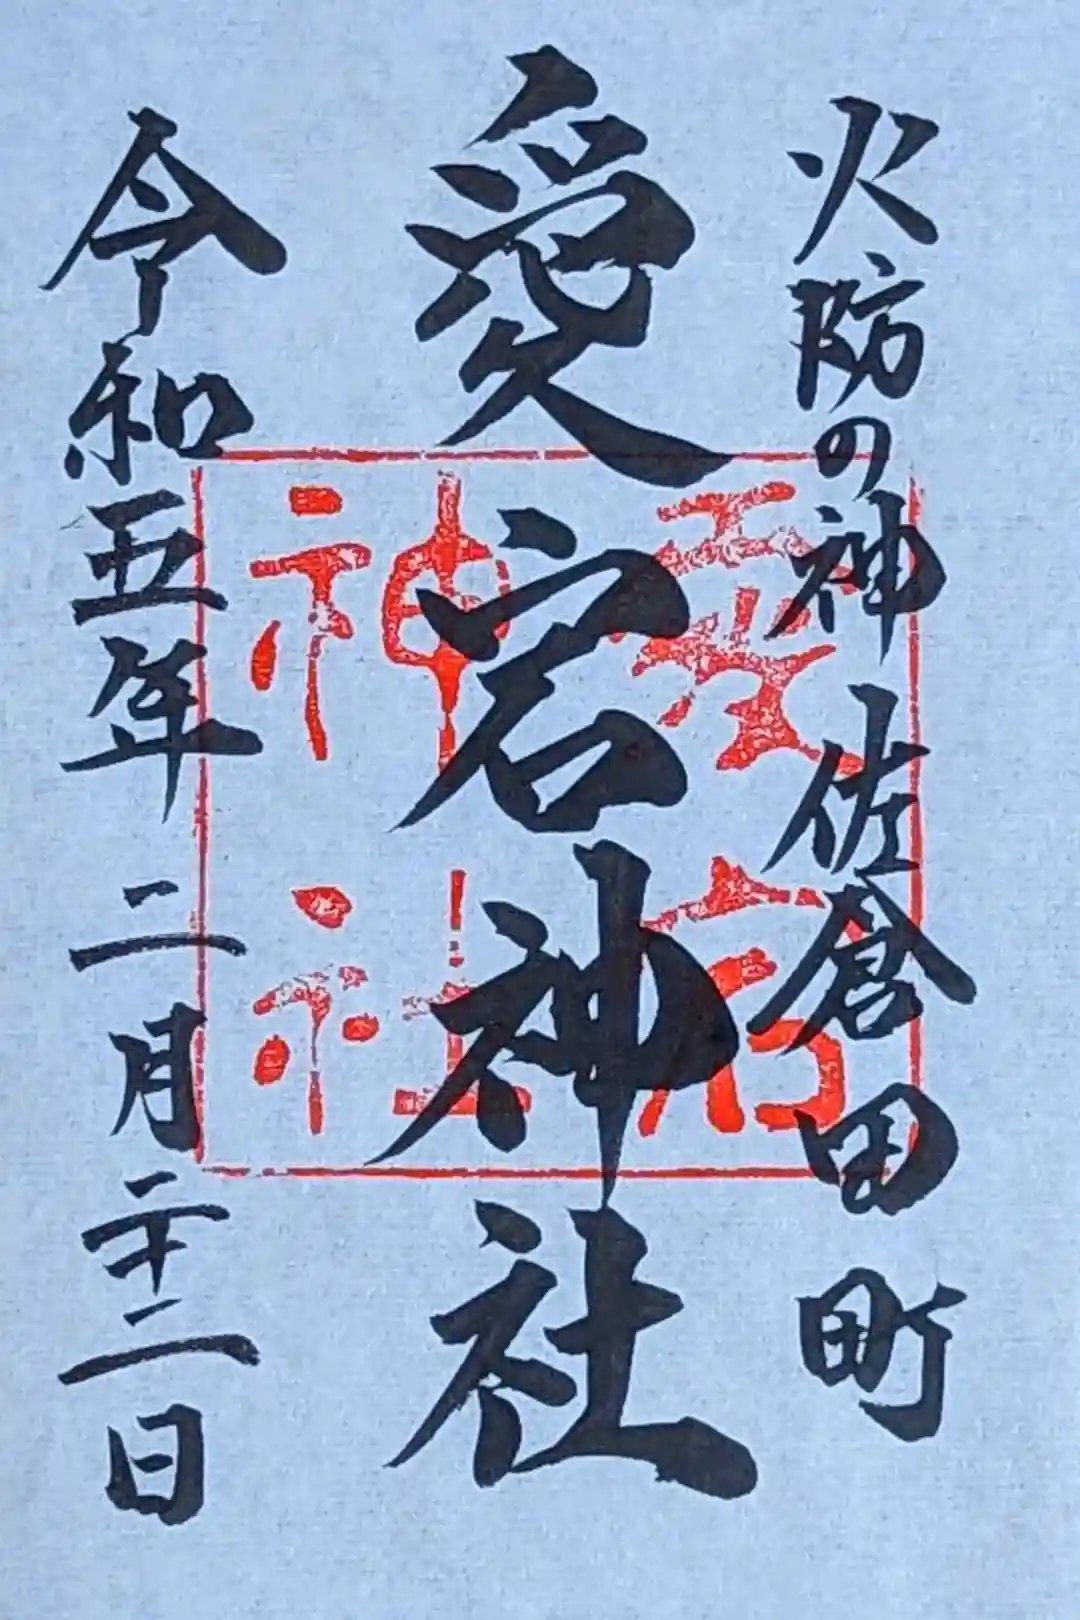 火防の神 佐倉田町
愛宕神社
令和五年二月二十二日
愛宕
神社